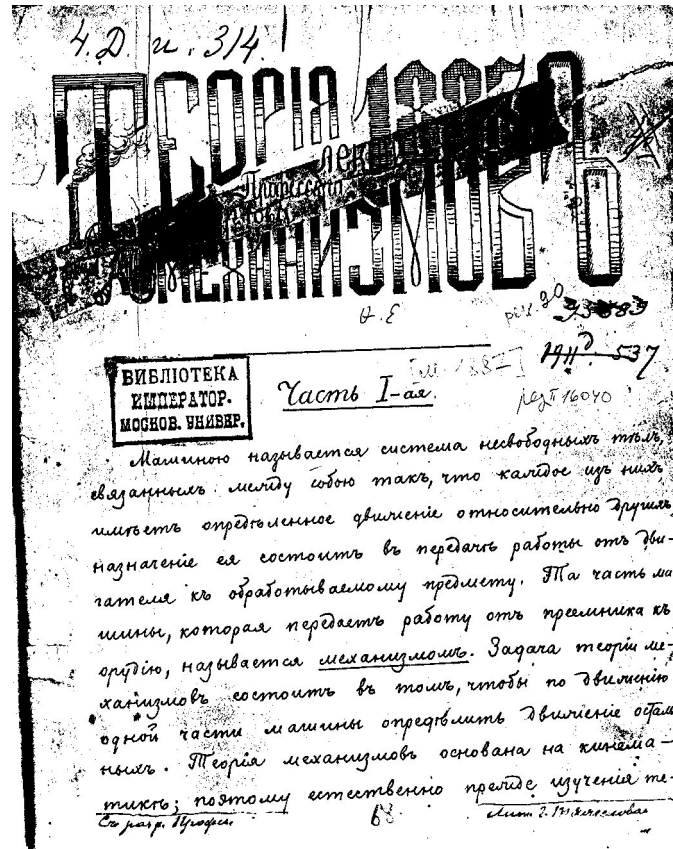 Ч. Д. и. 314.
ТЕОРІЯ
Профессора
МЕХАНИЗМОВЪ
1911 537
БИБЛІОТЕКА
ИМПЕРАТОР.
МОСКОВ. УНИВЕР.
Часть I-ая.
16040
Машиною называется система несвободныхъ тѣлъ,
связанныхъ между собою такъ, что каждое изъ нихъ
имѣетъ опредѣленное движеніе относительно другихъ
назначеніе ея состоитъ въ передачѣ работы отъ дви-
гателя къ обработываемому предмету. Та часть ма
шины, которая передаетъ работу отъ преемника къ
орудію, называется механизмомъ. Задача теоріи ме-
ханизмовъ состоитъ въ томъ, чтобы по движенію
одной части машины опредѣлить движеніе осталь
ныхъ. Теорія механизмовъ основана на кинема-
тикѣ; поэтому естественно прежде изученія те-
Съ разр. Профес.